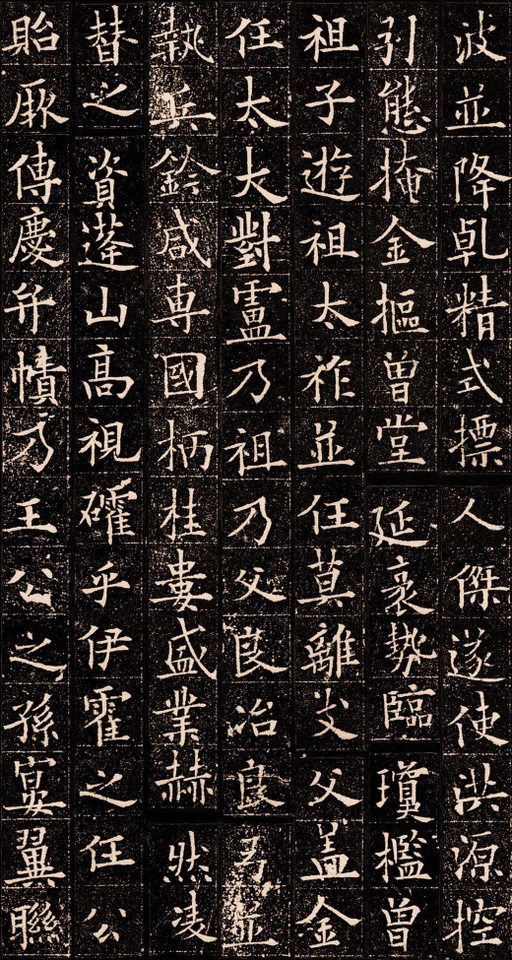 波並降乹精式摽人傑遂使洪源控
引態掩金樞曾堂延袤勢臨瓊檻曾
祖子遊祖太祚並任莫離支父盖金
任太大對盧乃祖乃父良冶良弓並
執兵鈐咸專國柄桂婁盛業赫然凌
替之資蓬山高視確乎伊霍之任公
貽厥傳慶弁幘乃王公之孫宴翼聯